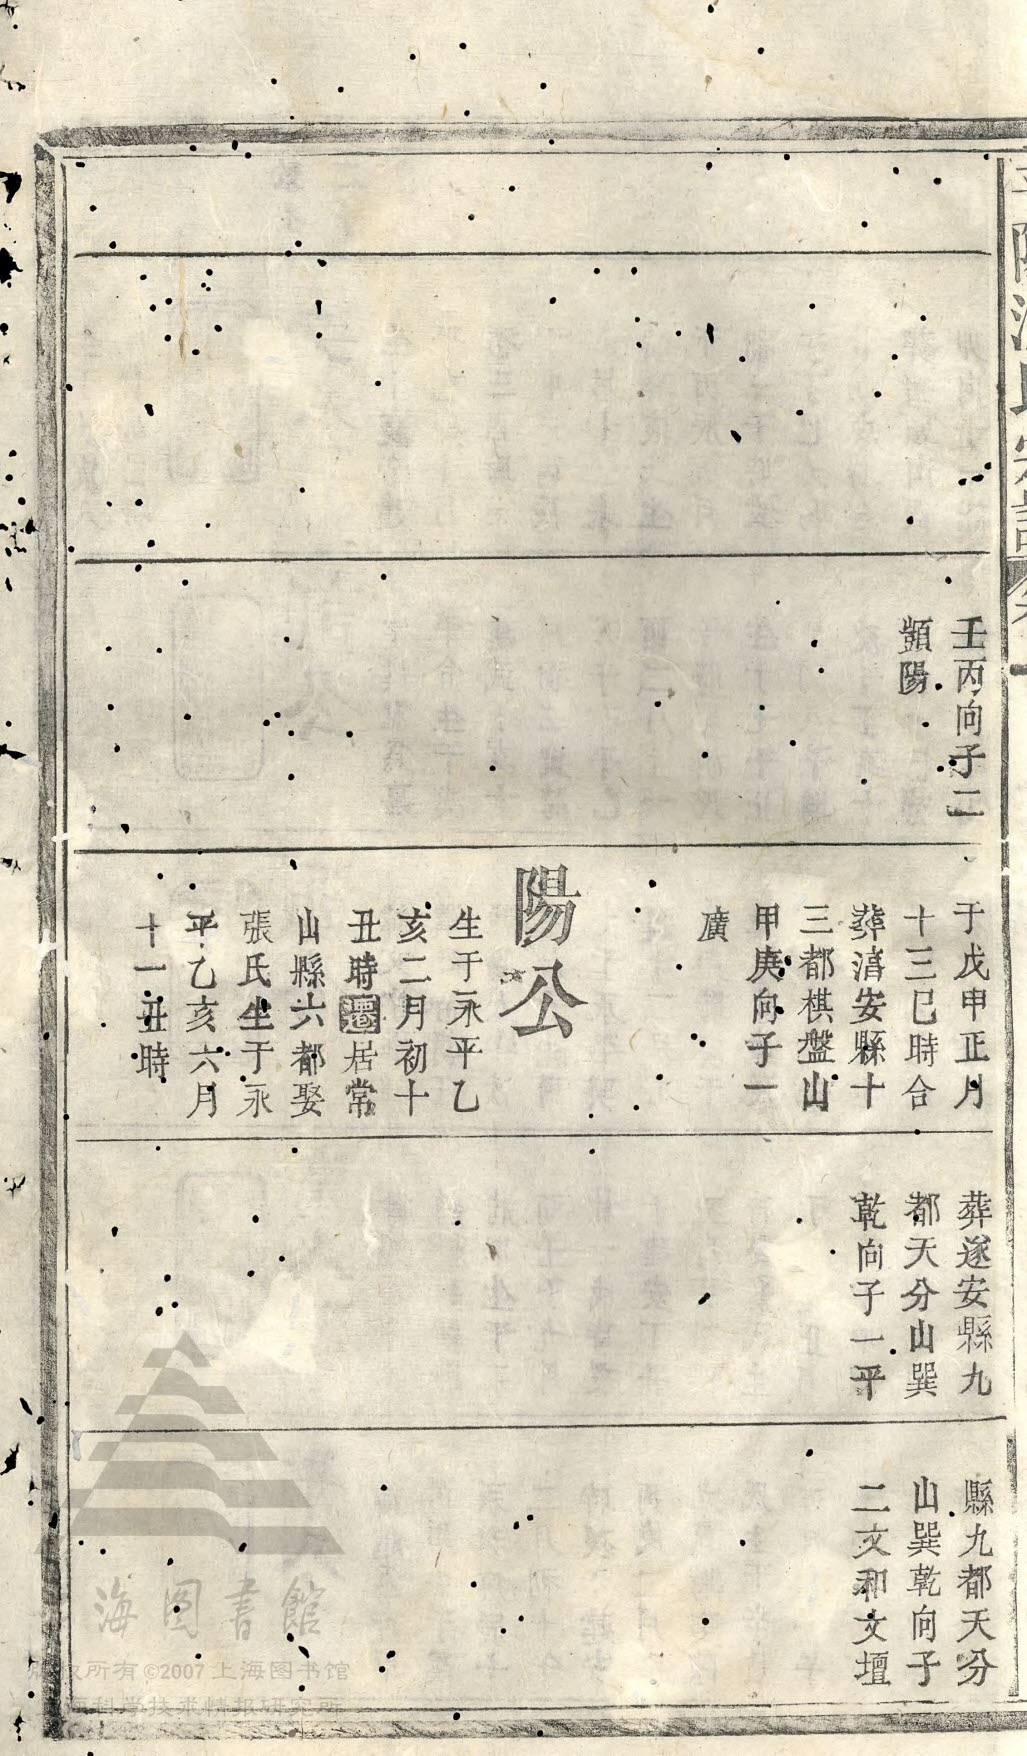 壬丙向子二
顗陽
于戊申正月
十三巳時合
葬淯安縣十
三都棋盤山
甲庚向子一
廣
陽公
生于永平乙
亥二月初十
丑時遷居常
山縣六都娶
張氏生于永
平乙亥六月
十一丑時
葬遂安縣九
都天分山巽
乾向子一平
縣九都天分
山巽乾向子
二文和文壇
海图書館
权所有©2007上海图书馆
海科学技术情报研究所